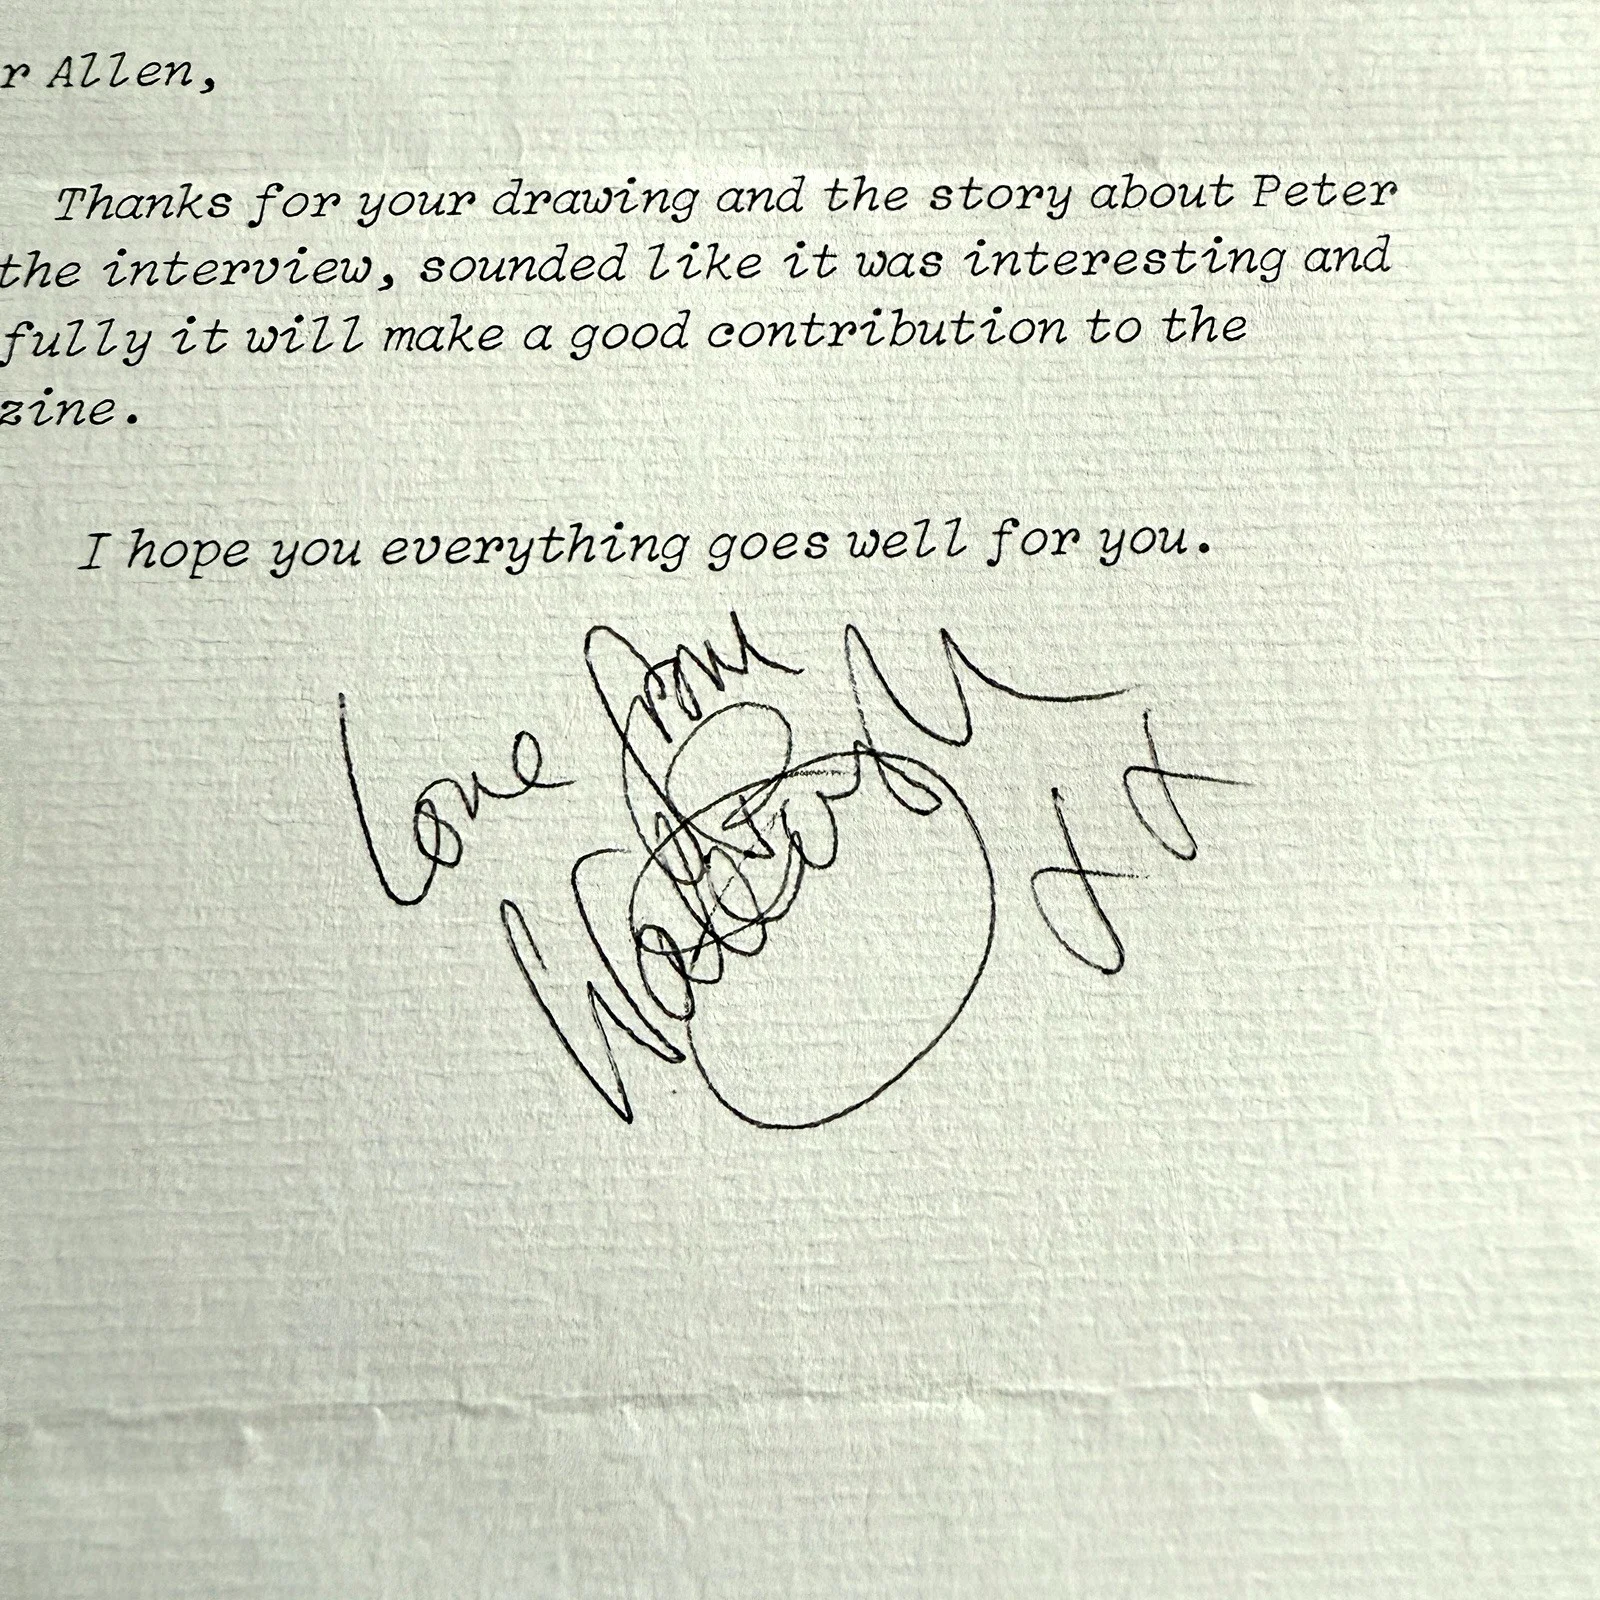 r Allen,
Thanks for your drawing and the story about Peter
the interview, sounded like it was interesting and
fully it will make a good contribution to the
zine.
I hope you everything goes well for you.
Love from
x x